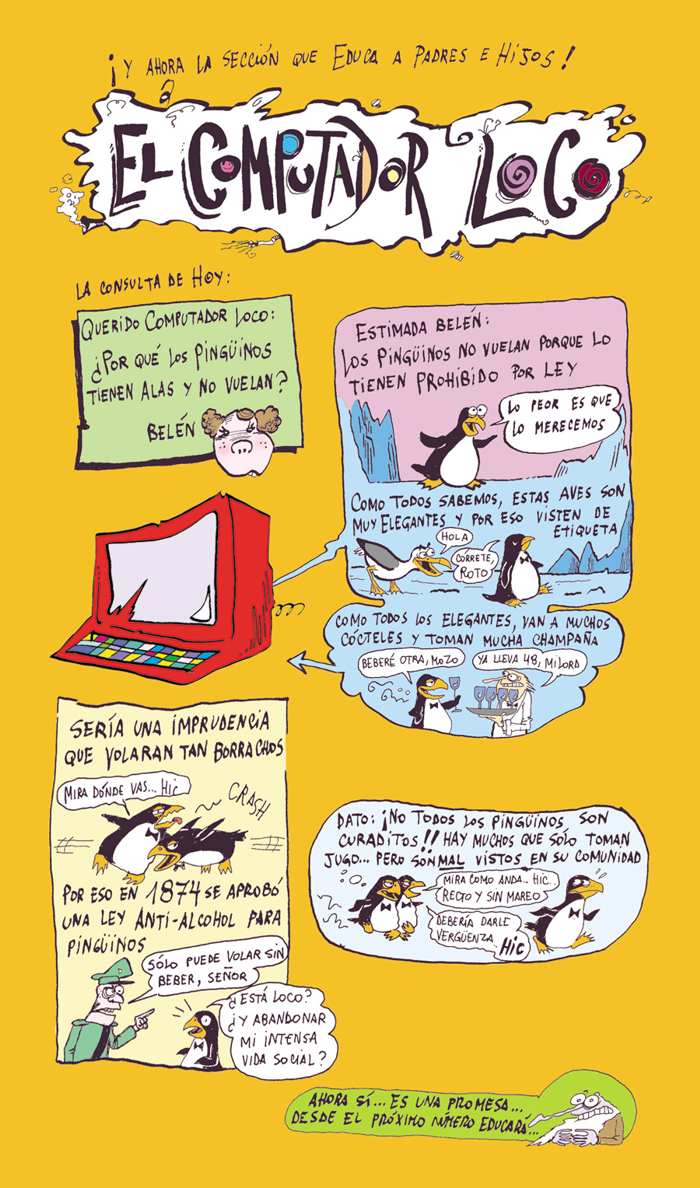 ¡Y AHORA LA SECCIÓN QUE EDUCA A PADRES E HIJOS!
EL COMPUTADOR LOCO
LA CONSULTA DE HOY:
QUERIDO COMPUTADOR LOCO:
¿POR QUÉ LOS PINGÜINOS
TIENEN ALAS Y NO VUELAN?
BELÉN
ESTIMADA BELÉN:
LOS PINGÜINOS NO VUELAN PORQUE LO
TIENEN PROHIBIDO POR LEY
LO PEOR ES QUE
LO MERECEMOS
COMO TODOS SABEMOS, ESTAS AVES SON
MUY ELEGANTES Y POR ESO VISTEN DE
ETIQUETA
HOLA
CÓRRETE,
ROTO
COMO TODOS LOS ELEGANTES, VAN A MUCHOS
CÓCTELES Y TOMAN MUCHA CHAMPAÑA
BEBERÉ OTRA, MOZO
YA LLEVA 48, MILORD
SERÍA UNA IMPRUDENCIA
QUE VOLARAN TAN BORRACHOS
MIRA DÓNDE VAS... HIC
CRASH
POR ESO EN 1874 SE APROBÓ
UNA LEY ANTI-ALCOHOL PARA
PINGÜINOS
SÓLO PUEDE VOLAR SIN
BEBER, SEÑOR
¿ESTÁ LOCO?
¿Y ABANDONAR
MI INTENSA
VIDA SOCIAL?
DATO: ¡NO TODOS LOS PINGÜINOS SON
CURADITOS!! HAY MUCHOS QUE SÓLO TOMAN
JUGO... PERO SON MAL VISTOS EN SU COMUNIDAD
MIRA COMO ANDA... HIC
RECTO Y SIN MAREO
DEBERÍA DARLE
VERGÜENZA
HIC
AHORA SÍ... ES UNA PROMESA...
DESDE EL PRÓXIMO NÚMERO EDUCARÁ...